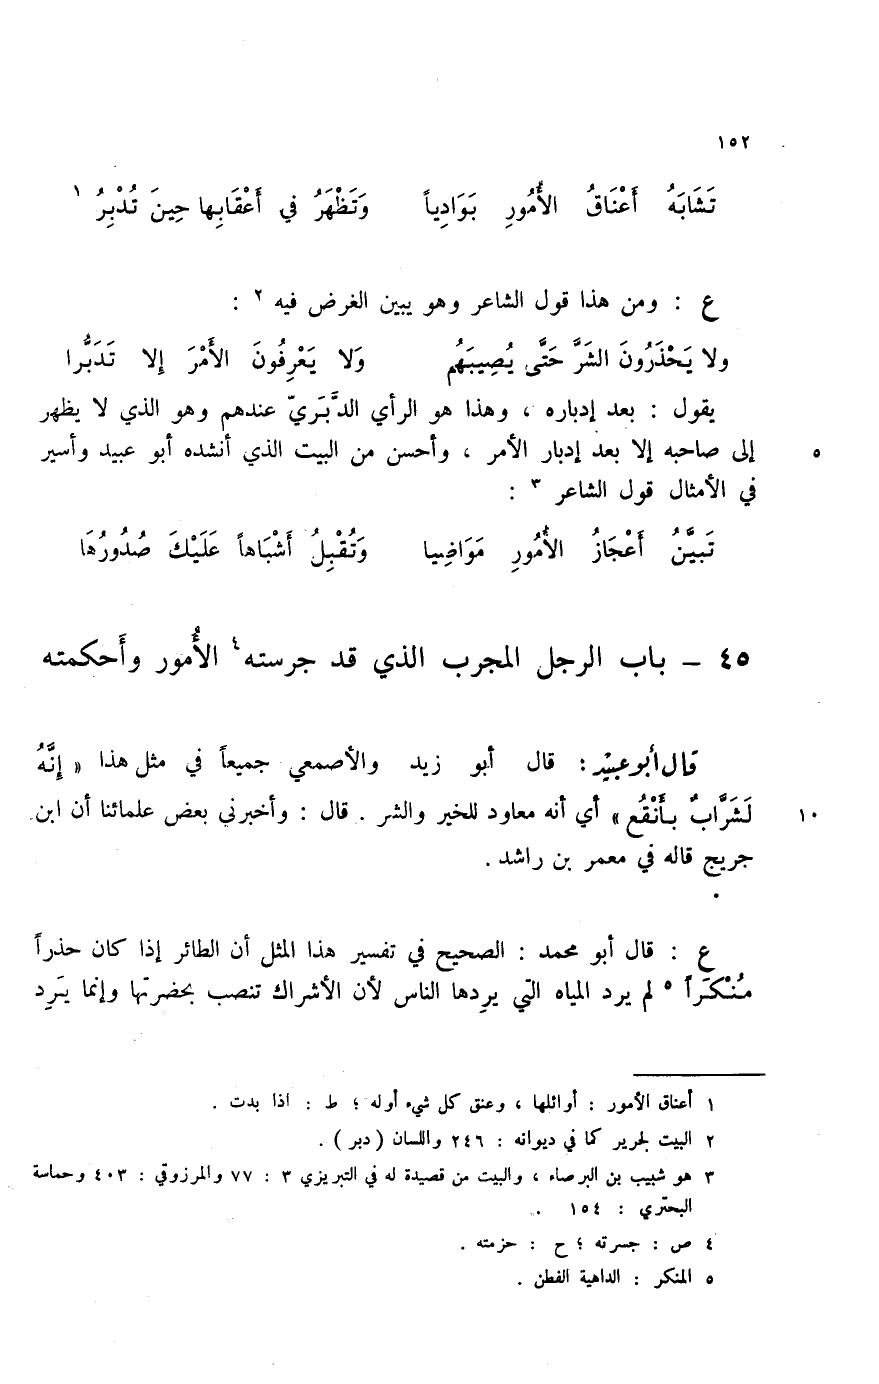 ١٥٢
تَشَابَهُ أَعْنَاقُ الأُمُورِ بَوَادِياً وَتَظْهَرُ في أَعْقَابِها حِينَ تُدْبِرُ ١
ع : ومن هذا قول الشاعر وهو يبين الغرض فيه ٢ :
ولا يَحْذَرُونَ الشَرَّ حَتَّى يُصِيبَهُم وَلا يَعْرِفُونَ الأَمْرَ إِلا تَدَبُّرا
يقول : بعد إدباره ، وهذا هو الرأي الدَّبَريّ عندهم وهو الذي لا يظهر
٥ إلى صاحبه إلا بعد إدبار الأمر ، وأحسن من البيت الذي أنشده أبو عبيد وأسير
في الأمثال قول الشاعر ٣ :
تَبيَّنُ أَعْجَازُ الأُمُورِ مَوَاضِيا وَتُقْبِلُ أَشْبَاهاً عَلَيْكَ صُدُورُهَا
٤٥ – باب الرجل المجرب الذي قد جرسته٤ الأُمور وأَحكمته
قال أبو عبيد : قال أبو زيد والأصمعي جميعاً في مثل هذا « إِنَّهُ
١٠ لَشَرَّابٌ بأَنْقُع » أي أنه معاود للخير والشر . قال : وأخبرني بعض علمائنا أن ابن
جريج قاله في معمر بن راشد .
ع : قال أبو محمد : الصحيح في تفسير هذا المثل أن الطائر إذا كان حذراً
مُنْكَراً ٥ لم يرد المياه التي يردها الناس لأن الأشراك تنصب بحضرتها وإنما يَرِد
١ أعناق الأمور : أوائلها ، وعنق كل شيء أوله ؛ ط : اذا بدت .
٢ البيت لجرير كما في ديوانه : ٢٤٦ واللسان ( دبر ) .
٣ هو شبيب بن البرصاء ، والبيت من قصيدة له في التبريزي ٣ : ٧٧ والمرزوقي : ٤٠٣ وحماسة
البحتري : ١٥٤ .
٤ ص : جسرته ؛ ح : حزمته .
٥ المنكر : الداهية الفطن .